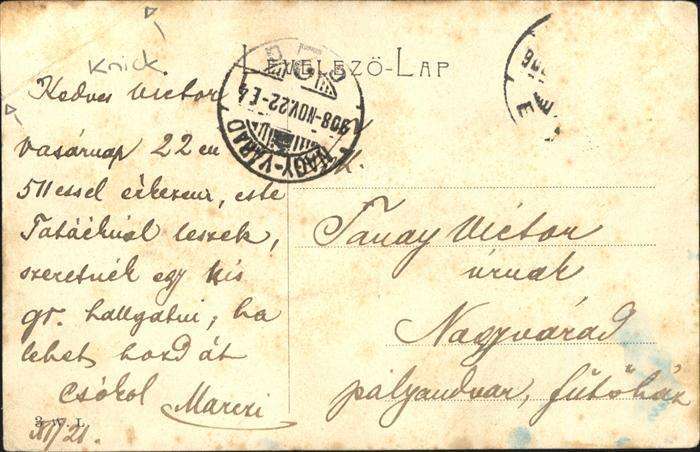 Knick
LEVELEZŐ-LAP
NAGY-VÁRAD
908-NOV.22-E.4
Kedves Victor
vasárnap 22 en
511 essel érkezem, este
Tatáéknál leszek,
szeretnék egy kis
gr. hallgatni, ha
lehet hozd át
Csókol Marczi
XI/21.
3 W. L.
Tanay Victor
úrnak
Nagyvárad
pályaudvar, fűtőház